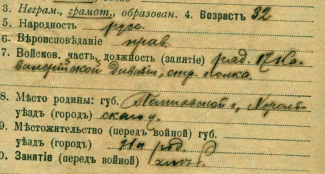 3. Неграм., грамот., образован. 4. Возрастъ 32
5. Народность русс
6. Вѣроисповѣданіе прав.
7. Войсков. часть, должность (занятіе) ряд. 17 Ка
валерійской дивизіи, стр. полка.
8. Мѣсто родины: губ. Полтавской г, Хороль
уѣздъ (городъ) скаго у.
9. Мѣстожительство (передъ войной) губ.
уѣздъ (городъ) на род.
0. Занятіе (передъ войной) хлѣб